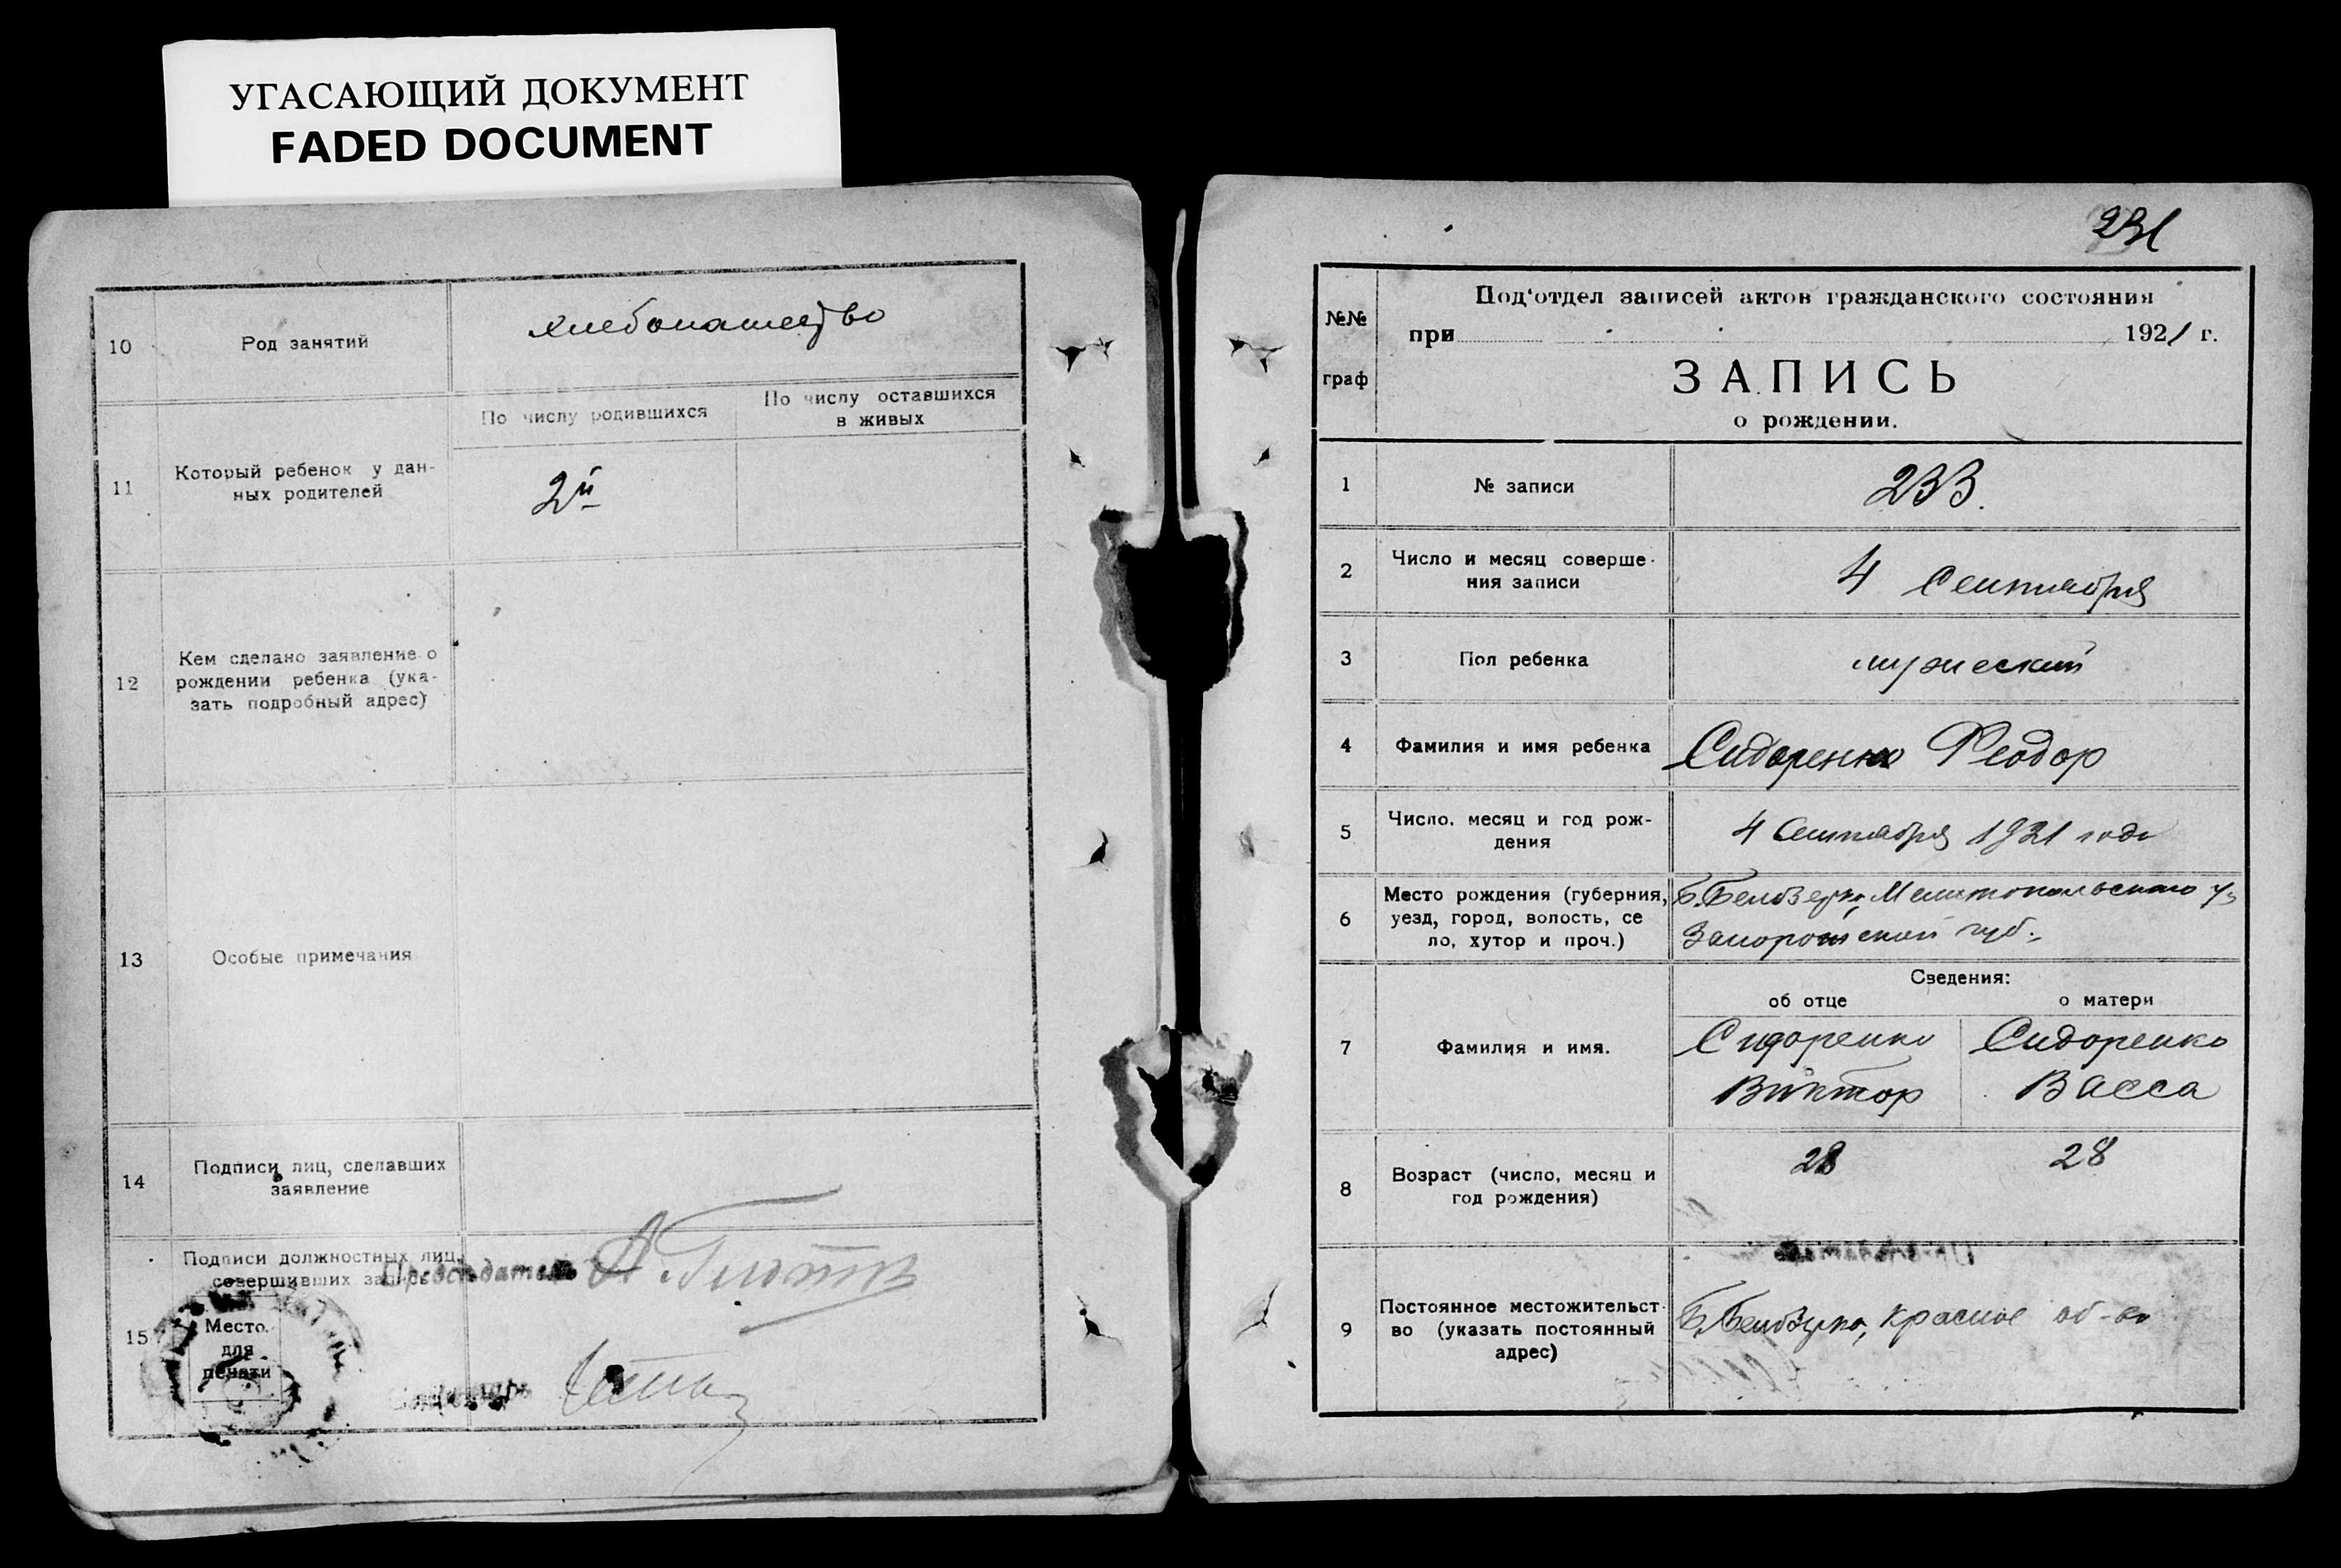 УГАСАЮЩИЙ ДОКУМЕНТ
FADED DOCUMENT
10
Род занятий
хлебопашество
11
Который ребенок у дан-
ных родителей
По числу родившихся
По числу оставшихся
в живых
2й
12
Кем сделано заявление о
рождении ребенка (ука-
зать подробный адрес)
13
Особые примечания
14
Подписи лиц, сделавших
заявление
15
Подписи должностных лиц,
совершивших запись
Председатель
Место
для
печати
Секретарь
231
№№
граф
Под‘отдел записей актов гражданского состояния
при 1921 г.
ЗАПИСЬ
о рождении.
1
№ записи
233.
2
Число и месяц соверше-
ния записи
4 Сентября
3
Пол ребенка
мужеский
4
Фамилия и имя ребенка
Сидоренко Феодор
5
Число, месяц и год рож-
дения
4 Сентября 1921 года
6
Место рождения (губерния,
уезд, город, волость, се
ло, хутор и проч.)
Б.Белозерка, Мелитопольского у.
Запорожской губ.
Сведения:
об отце
о матери
7
Фамилия и имя.
Сидоренко
Виктор
Сидоренко
Васса
8
Возраст (число, месяц и
год рождения)
28
28
9
Постоянное местожительст-
во (указать постоянный
адрес)
Б.Белозерка, Красное об-во